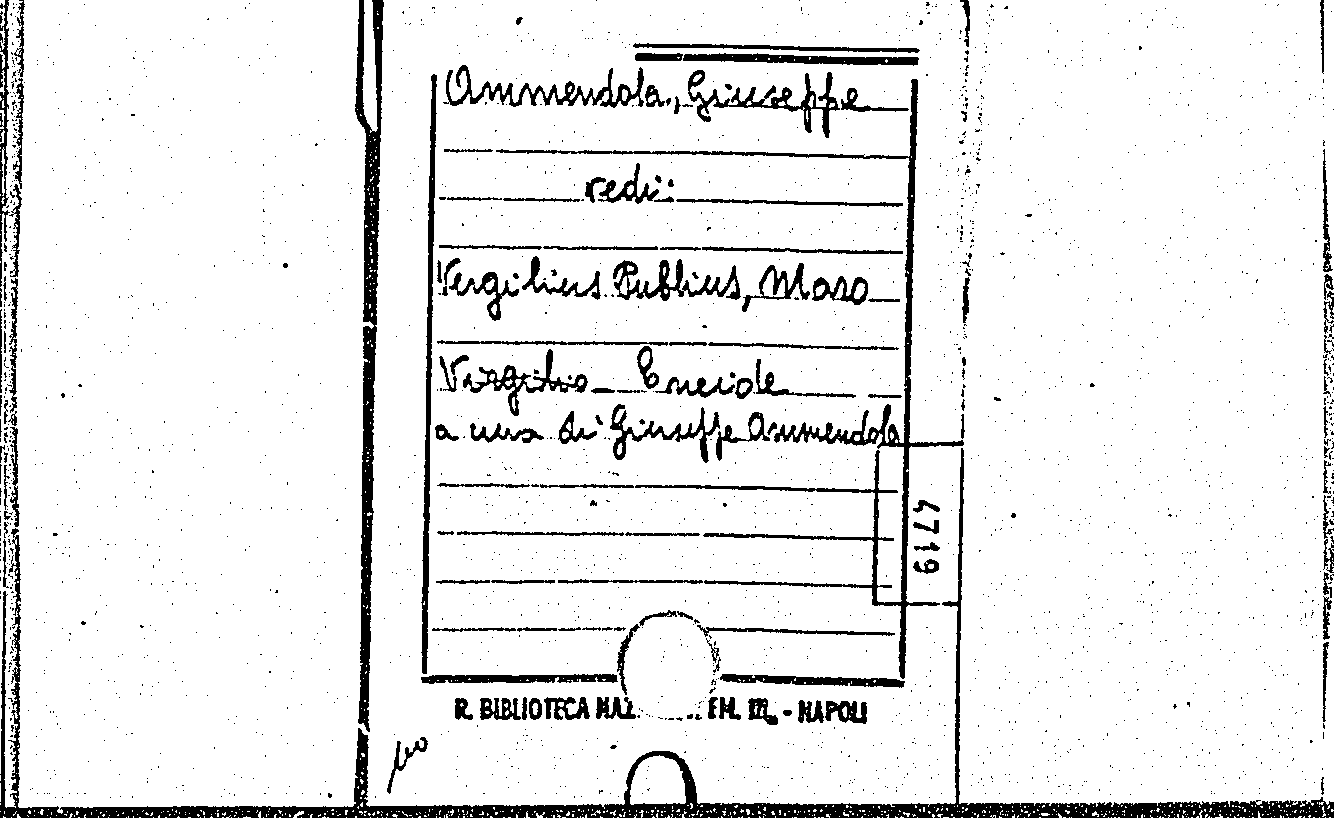 Ammendola, Giuseppe
vedi:
Vergilius Publius, Maro
Virgilio - Eneide
a cura di Giuseppe Ammendola
4719
R. BIBLIOTECA NAZ. EM. III. - NAPOLI